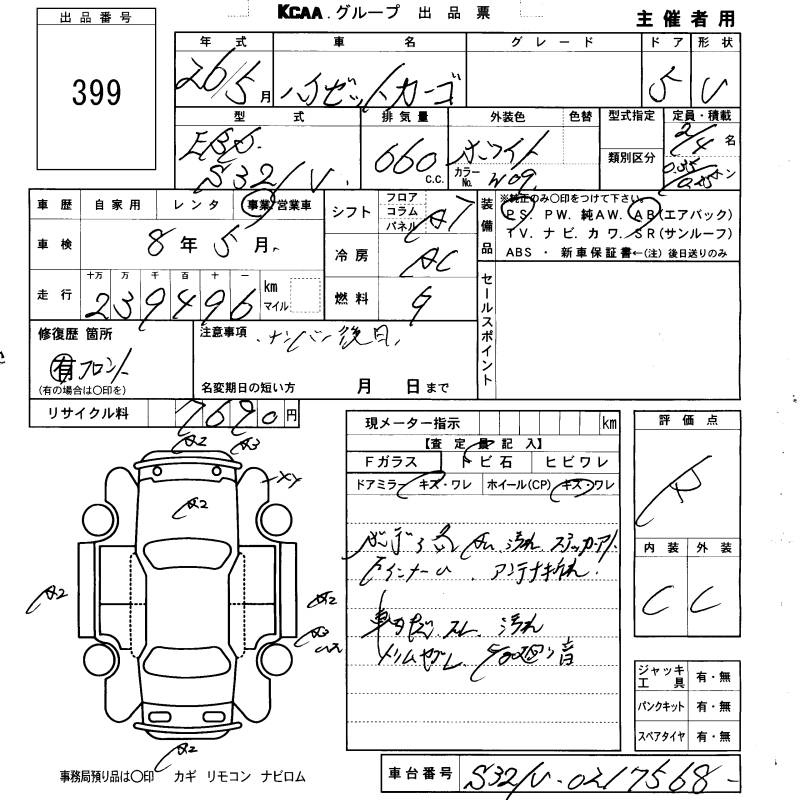 KCAA.グループ 出品票
主催者用
出品番号
399
年式 車名 グレード ドア 形状
26/5月 ハイゼットカーゴ 5 V
型式 排気量 外装色 色替 型式指定 定員・積載
EBD. S321V. 660 c.c. ホワイト 2/4 名
カラーNo. W09
類別区分 0.35/0.25 トン
車歴 自家用 レンタ 事業/営業車
車検 8年 5月
走行 十万 万 千 百 十 一
239496 km マイル
シフト フロア コラム パネル AT
冷房 AC
燃料 G
装備品
※純正のみ○印をつけて下さい。
PS. PW. 純AW. AB(エアバック)
TV. ナビ. カワ. SR(サンルーフ)
ABS ・ 新車保証書←(注) 後日送りのみ
セールスポイント
修復歴 箇所
有 フロント
(有の場合は○印を)
注意事項 ナンバー後日.
名変期日の短い方 月 日まで
リサイクル料 7690円
現メーター指示 km
【査定員記入】
Fガラス トビ石 ヒビワレ
ドアミラー キズ・ワレ ホイール(CP) キズ・ワレ
汚れ ステッカーアト.
アンテナ折れ.
スレ. 汚れ
評価点
R
内装 外装
C C
A2 A3
XX
A2
A2
A2
A3
A2
ジャッキ工具 有・無
パンクキット 有・無
スペアタイヤ 有・無
事務局預り品は○印 カギ リモコン ナビロム
車台番号 S321V-0217568-